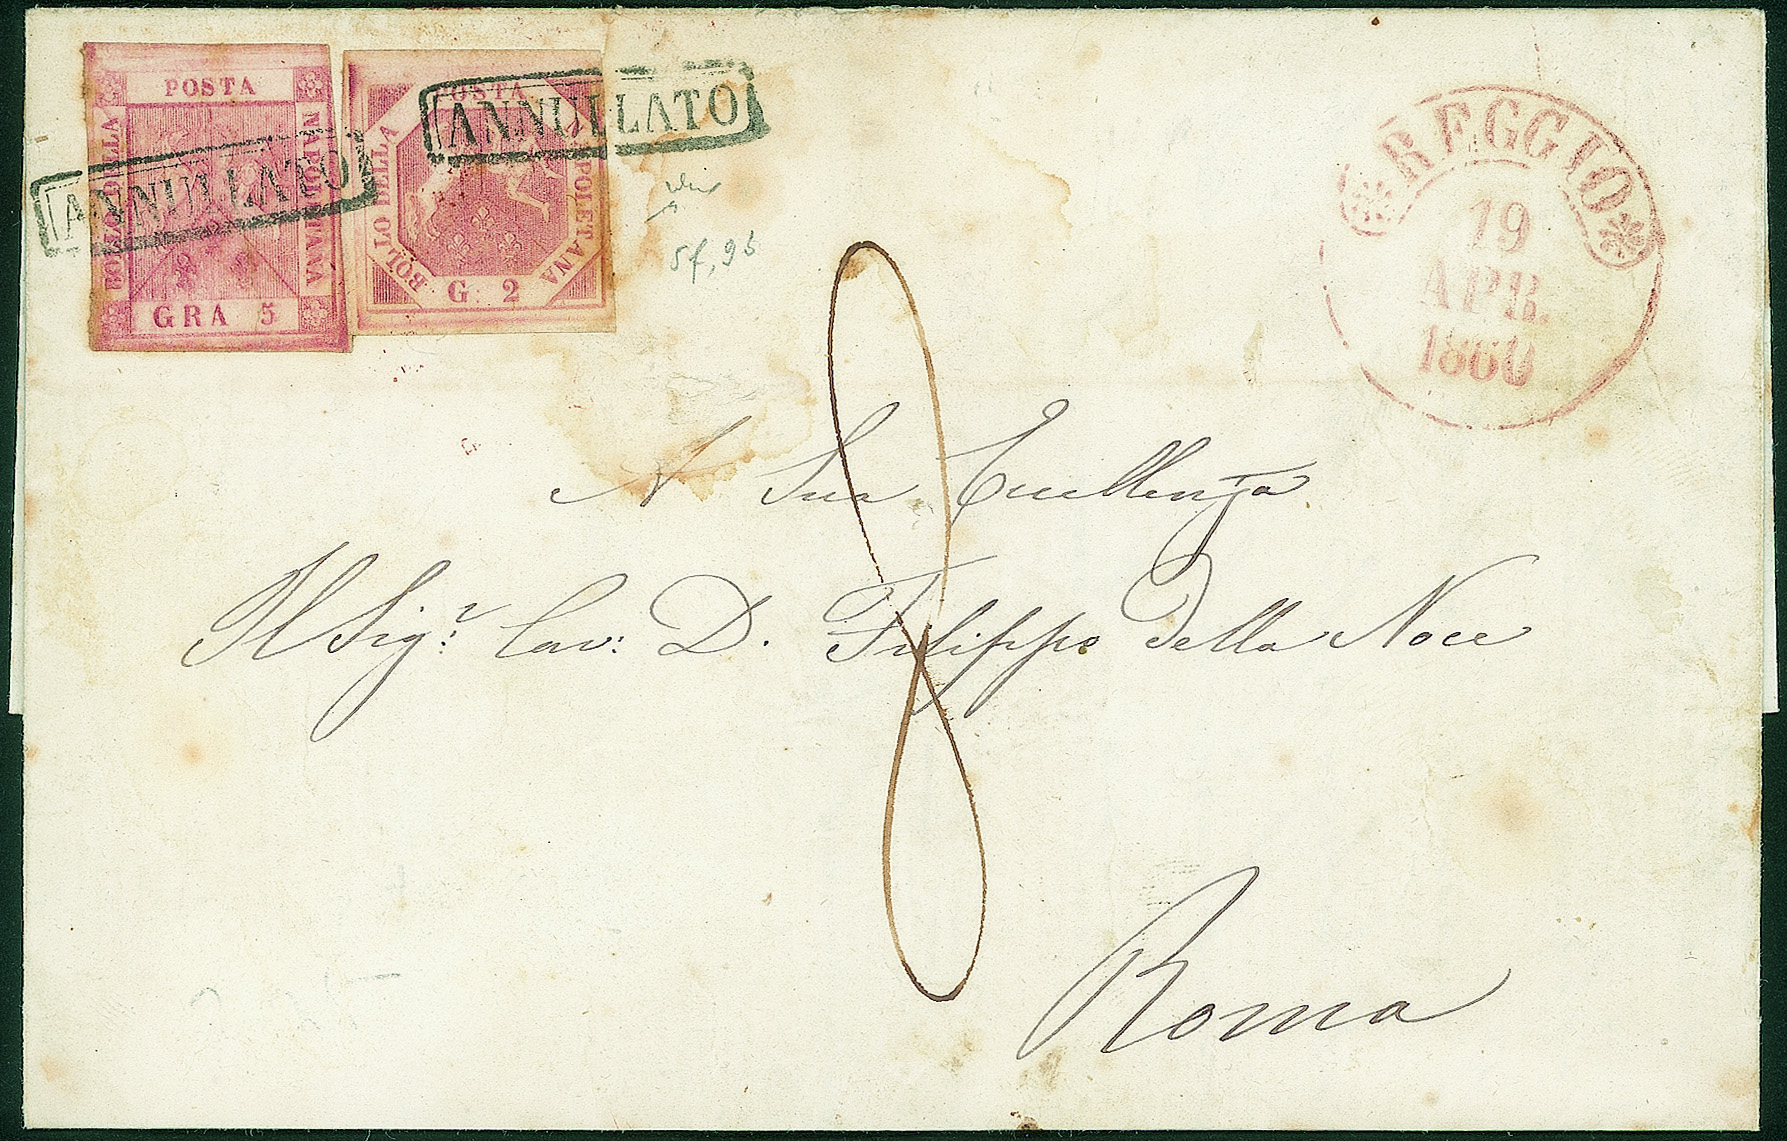 POSTA
BOLLO DELLA
NAPOLETANA
GRA 5
ANNULLATO
POSTA
BOLLO DELLA
NAPOLETANA
G: 2
ANNULLATO
5f, 95
REGGIO
19
APR.
1860
8
A Sua Eccellenza
Il Sigr: Cav: D. Filippo Della Noce
Roma